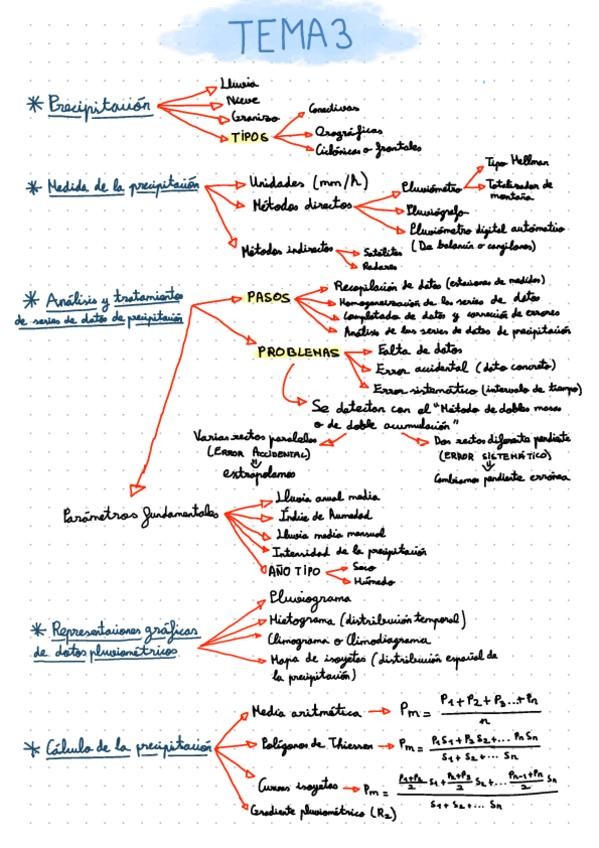 TEMA 3
* Precipitación
Lluvia
Nieve
Granizo
TIPOS
Conectivas
Orográficas
Ciclónicas o frontales
* Medida de la precipitación
Unidades (mm/h)
Métodos directos
Pluviómetro
Tipo Hellman
Totalizador de
montaña
Pluviógrafo
Pluviómetro digital automático
(De balancín o cangilones)
Métodos indirectos
Satélites
Radares
* Análisis y tratamientos
de series de datos de precipitación
PASOS
Recopilación de datos (estaciones de medidas)
Homogeneización de las series de datos
Completado de datos y corrección de errores
Análisis de las series de datos de precipitación
PROBLEMAS
Falta de datos
Error accidental (dato concreto)
Error sistemático (intervalo de tiempo)
Se detectan con el "Método de dobles masas
o de doble acumulación"
Varias rectas paralelas
(ERROR ACCIDENTAL)
extrapolamos
Dos rectas diferente pendiente
(ERROR SISTEMÁTICO)
Cambiamos pendiente errónea
Parámetros fundamentales
Lluvia anual media
Índice de humedad
Lluvia media mensual
Intensidad de la precipitación
AÑO TIPO
Seco
Húmedo
* Representaciones gráficas
de datos pluviométricos
Pluviograma
Histograma (distribución temporal)
Climograma o Climodiagrama
Mapa de isoyetas (distribución español de
la precipitación)
* Cálculo de la precipitación
Media aritmética → Pm = P1 + P2 + P3 ... + Pn / n
Polígonos de Thiessen → Pm = P1 S1 + P2 S2 + ... Pn Sn / S1 + S2 + ... Sn
Curvas isoyetas → Pm = P1+P2/2 S1 + P2+P3/2 S2 + ... Pn-1+Pn/2 Sn / S1 + S2 + ... Sn
Gradiente pluviométrico (R2)